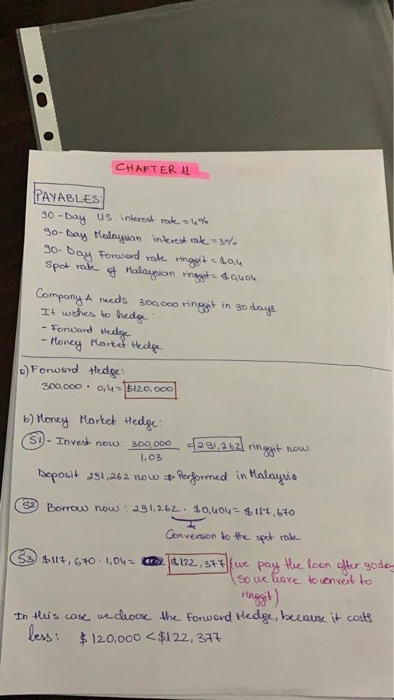 CHAPTER 11
PAYABLES:
90-Day US. interest rate = 4%
90-Day Malaysian interest rate = 3%
90-Day Forward rate ringgit = $0,4
Spot rate of Malaysian ringgit = $0,404
Company A needs 300,000 ringgit in 90 days.
It wishes to hedge:
- Forward Hedge
- Money Market Hedge
a) Forward Hedge:
300,000 · 0,4 = $120,000
b) Money Market Hedge:
S1 - Invest now: 300,000 = 291,262 ringgit now.
1,03
Deposit 291,262 now → Performed in Malaysia
S2 Borrow now: 291,262 · $0,404 = $117,670
Conversion to the spot rate
S3 $117,670 · 1,04 = $122,377 (we pay the loan after 90 day
so we have to convert to
ringgit)
In this case we choose the Forward Hedge, because it costs
less: $120,000 < $122,377